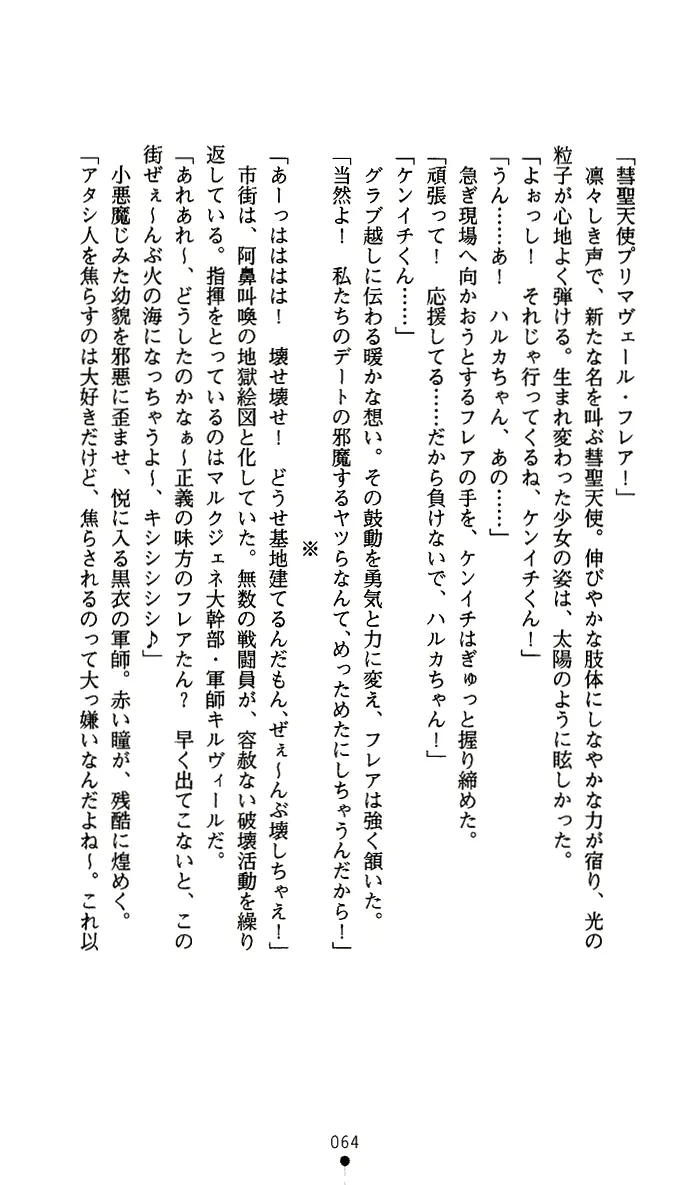 「彗聖天使プリマヴェール・フレア！」
　凛々しき声で、新たな名を叫ぶ彗聖天使。伸びやかな肢体にしなやかな力が宿り、光の
粒子が心地よく弾ける。生まれ変わった少女の姿は、太陽のように眩しかった。
「よぉっし！　それじゃ行ってくるね、ケンイチくん！」
「うん……あ！　ハルカちゃん、あの……」
　急ぎ現場へ向かおうとするフレアの手を、ケンイチはぎゅっと握り締めた。
「頑張って！　応援してる……だから負けないで、ハルカちゃん！」
「ケンイチくん……」
　グラブ越しに伝わる暖かな想い。その鼓動を勇気と力に変え、フレアは強く頷いた。
「当然よ！　私たちのデートの邪魔するヤツらなんて、めっためたにしちゃうんだから！」
※
「あーっはははは！　壊せ壊せ！　どうせ基地建てるんだもん、ぜぇ〜んぶ壊しちゃえ！」
　市街は、阿鼻叫喚の地獄絵図と化していた。無数の戦闘員が、容赦ない破壊活動を繰り
返している。指揮をとっているのはマルクジェネ大幹部・軍師キルヴィールだ。
「あれあれ〜、どうしたのかなぁ〜正義の味方のフレアたん？　早く出てこないと、この
街ぜぇ〜んぶ火の海になっちゃうよ〜、キシシシシシ♪」
　小悪魔じみた幼貌を邪悪に歪ませ、悦に入る黒衣の軍師。赤い瞳が、残酷に煌めく。
「アタシ人を焦らすのは大好きだけど、焦らされるのって大っ嫌いなんだよね〜。これ以
064